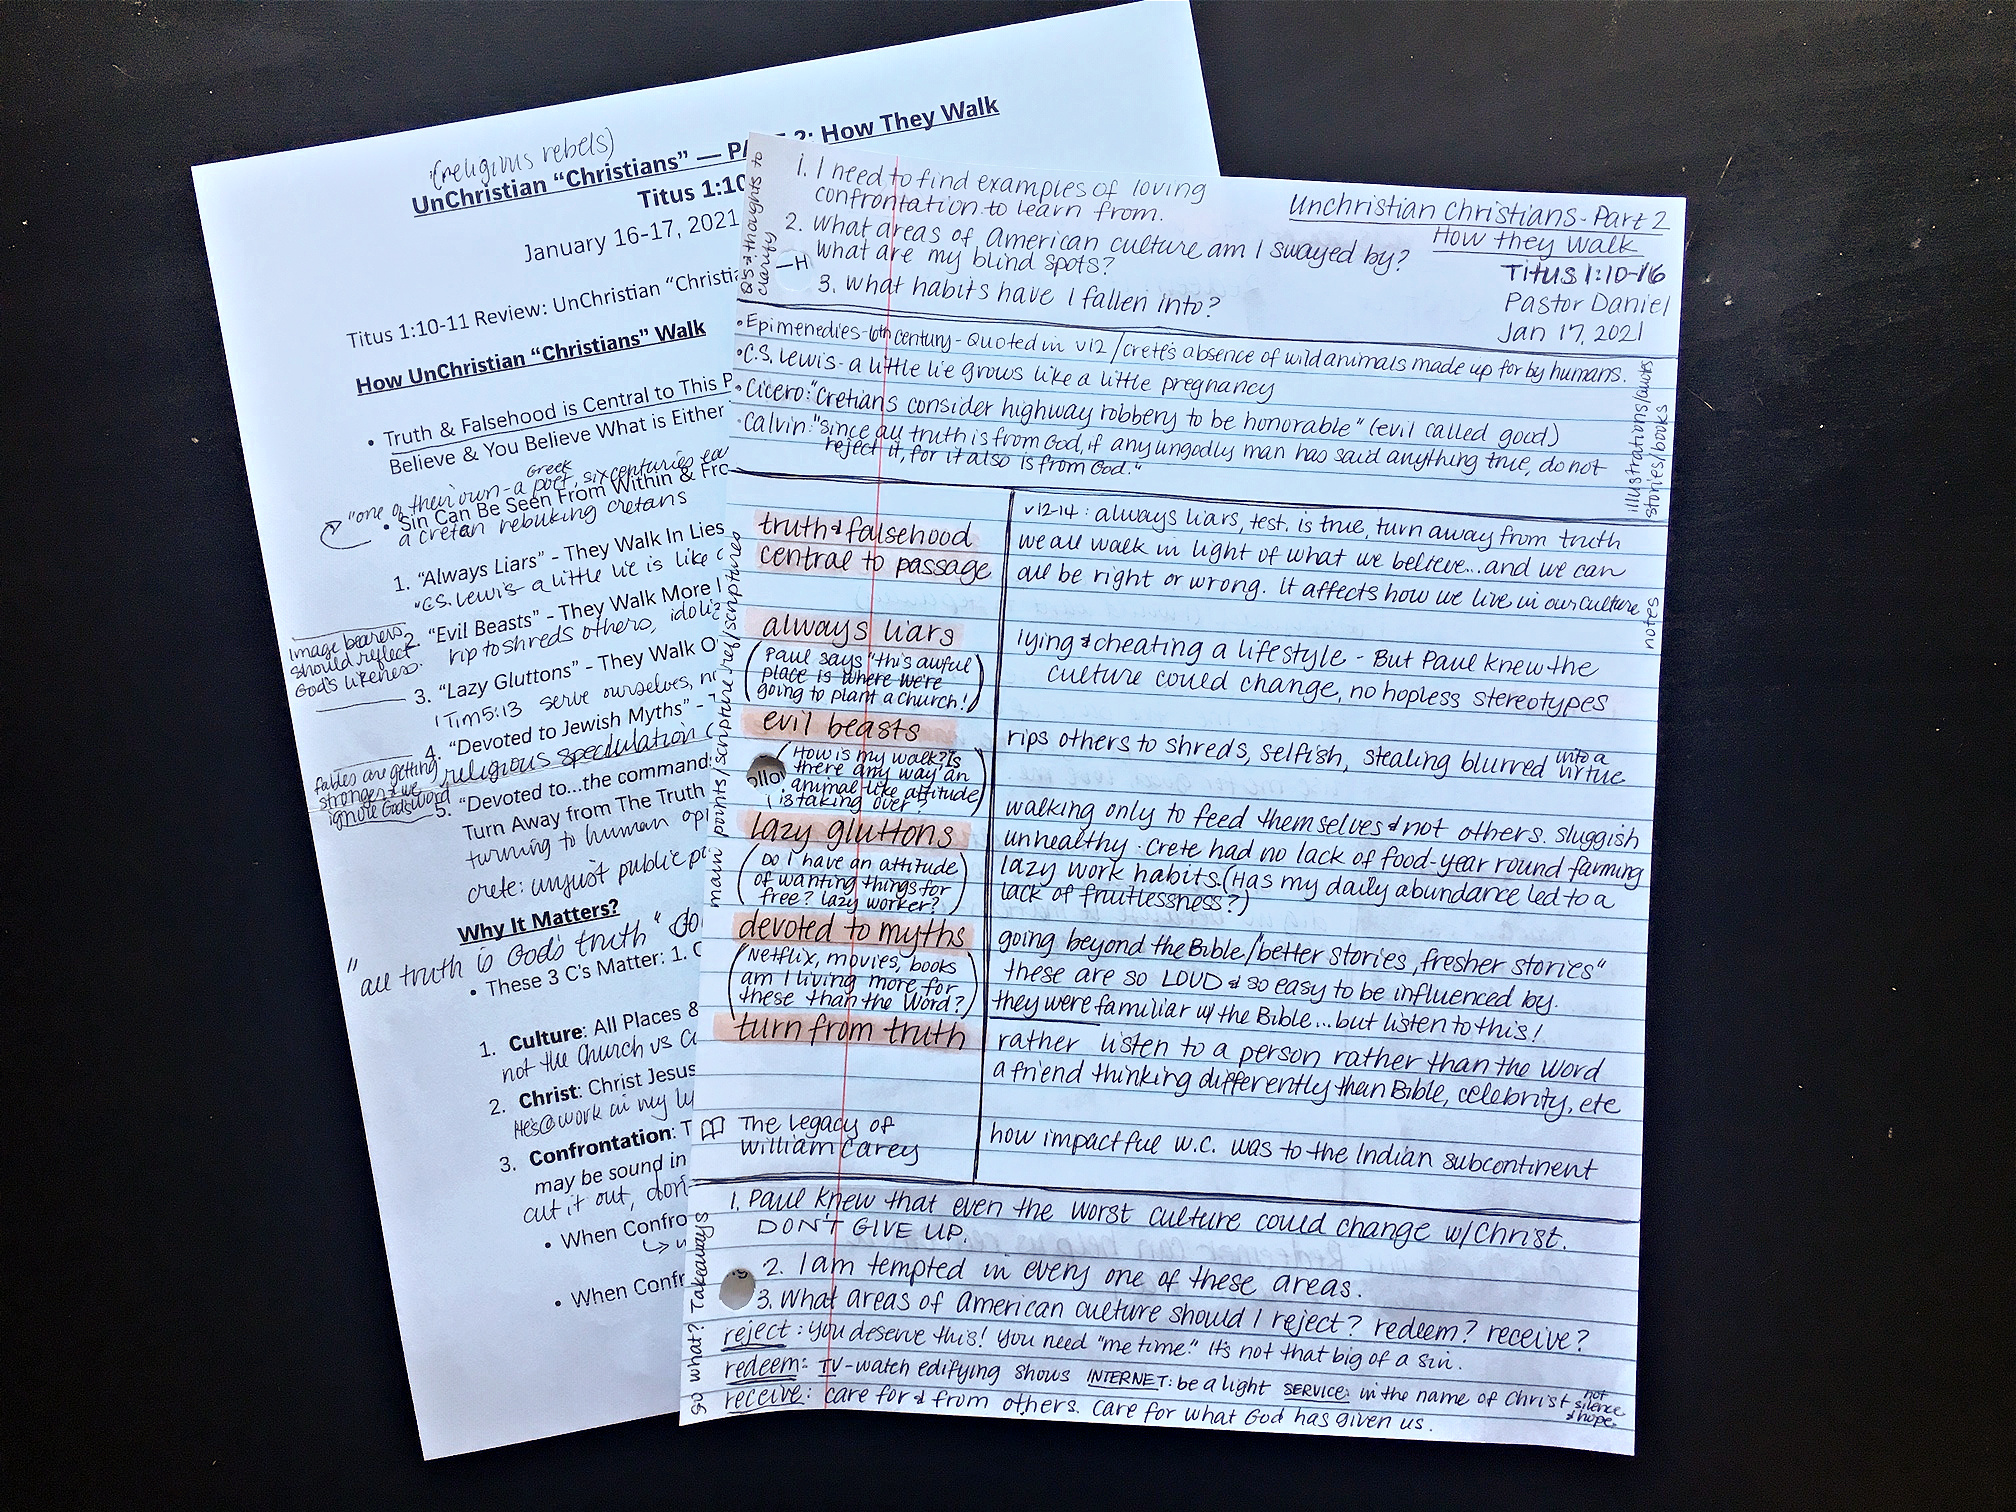 (religious rebels)
UnChristian “Christians” — PA 2: How They Walk
Titus 1:10
January 16-17, 2021
Titus 1:10-11 Review: UnChristian “Christia
How UnChristian “Christians” Walk
• Truth & Falsehood is Central to This P
Believe & You Believe What is Either
Greek
"one of their own - a poet, six centuries ear
• Sin Can Be Seen From Within & Fro
a cretan rebuking cretans
1. “Always Liars” - They Walk In Lies
"C.S. Lewis - a little lie is like
2. “Evil Beasts” - They Walk More
rip to shreds others, idoliz
image bearers
should reflect
God's likeness.
3. “Lazy Gluttons” - They Walk O
1 Tim 5:13 serve ourselves, no
4. “Devoted to Jewish Myths” -
religious speculation
fables are getting
stronger & we
ignore God's word
5. “Devoted to...the command
Turn Away from The Truth
turning to human opi
crete: unjust public p
Why It Matters?
"all truth is God's truth" do
• These 3 C's Matter: 1. C
1. Culture: All Places &
not the Church vs C
2. Christ: Christ Jesus
He's @ work in my li
3. Confrontation: T
may be sound in
cut it out, don't
• When Confro
• When Confr
Q's & thoughts to
clarify
1. I need to find examples of loving
confrontation to learn from.
2. What areas of American culture am I swayed by?
What are my blind spots?
3. What habits have I fallen into?
— H
Unchristian Christians - Part 2
How they Walk
Titus 1:10-16
Pastor Daniel
Jan 17, 2021
• Epimenedies - 6th century - Quoted in v12 / Crete's absence of wild animals made up for by humans.
• C.S. Lewis - a little lie grows like a little pregnancy
• Cicero: "Cretians consider highway robbery to be honorable" (evil called good)
• Calvin: "Since all truth is from God, if any ungodly man has said anything true, do not
reject it, for it also is from God."
illustrations/quotes
stories/books
main points/scripture/ref/scriptures
notes
truth & falsehood
central to passage
v12-14: always liars, test. is true, turn away from truth
we all walk in light of what we believe...and we can
all be right or wrong. It affects how we live in our culture
always liars
(Paul says "this awful
place is where we're
going to plant a church!)
lying & cheating a lifestyle - But Paul knew the
culture could change, no hopless stereotypes
evil beasts
(How is my walk? Is
there any way an
animal like attitude
is taking over?)
ollo
rips others to shreds, selfish, stealing blurred into a
virtue
lazy gluttons
(Do I have an attitude
of wanting things for
free? lazy worker?)
walking only to feed themselves & not others. sluggish
unhealthy. Crete had no lack of food - year round farming
lazy work habits. (Has my daily abundance led to a
lack of fruitlessness?)
devoted to myths
(Netflix, movies, books
am I living more for
these than the Word?)
going beyond the Bible/"better stories, fresher stories"
these are so LOUD & so easy to be influenced by.
they were familiar w/ the Bible...but listen to this!
turn from truth
rather listen to a person rather than the Word
a friend thinking differently than Bible, celebrity, etc
The legacy of
William Carey
how impactful W.C. was to the Indian subcontinent
So what? Takeaways
1. Paul knew that even the worst culture could change w/ Christ.
DON'T GIVE UP.
2. I am tempted in every one of these areas.
3. What areas of American culture should I reject? redeem? receive?
reject: you deserve this! You need "me time." It's not that big of a sin.
redeem: TV - watch edifying shows INTERNET: be a light SERVICE: in the name of Christ not
silence
& hope.
receive: care for & from others. Care for what God has given us.